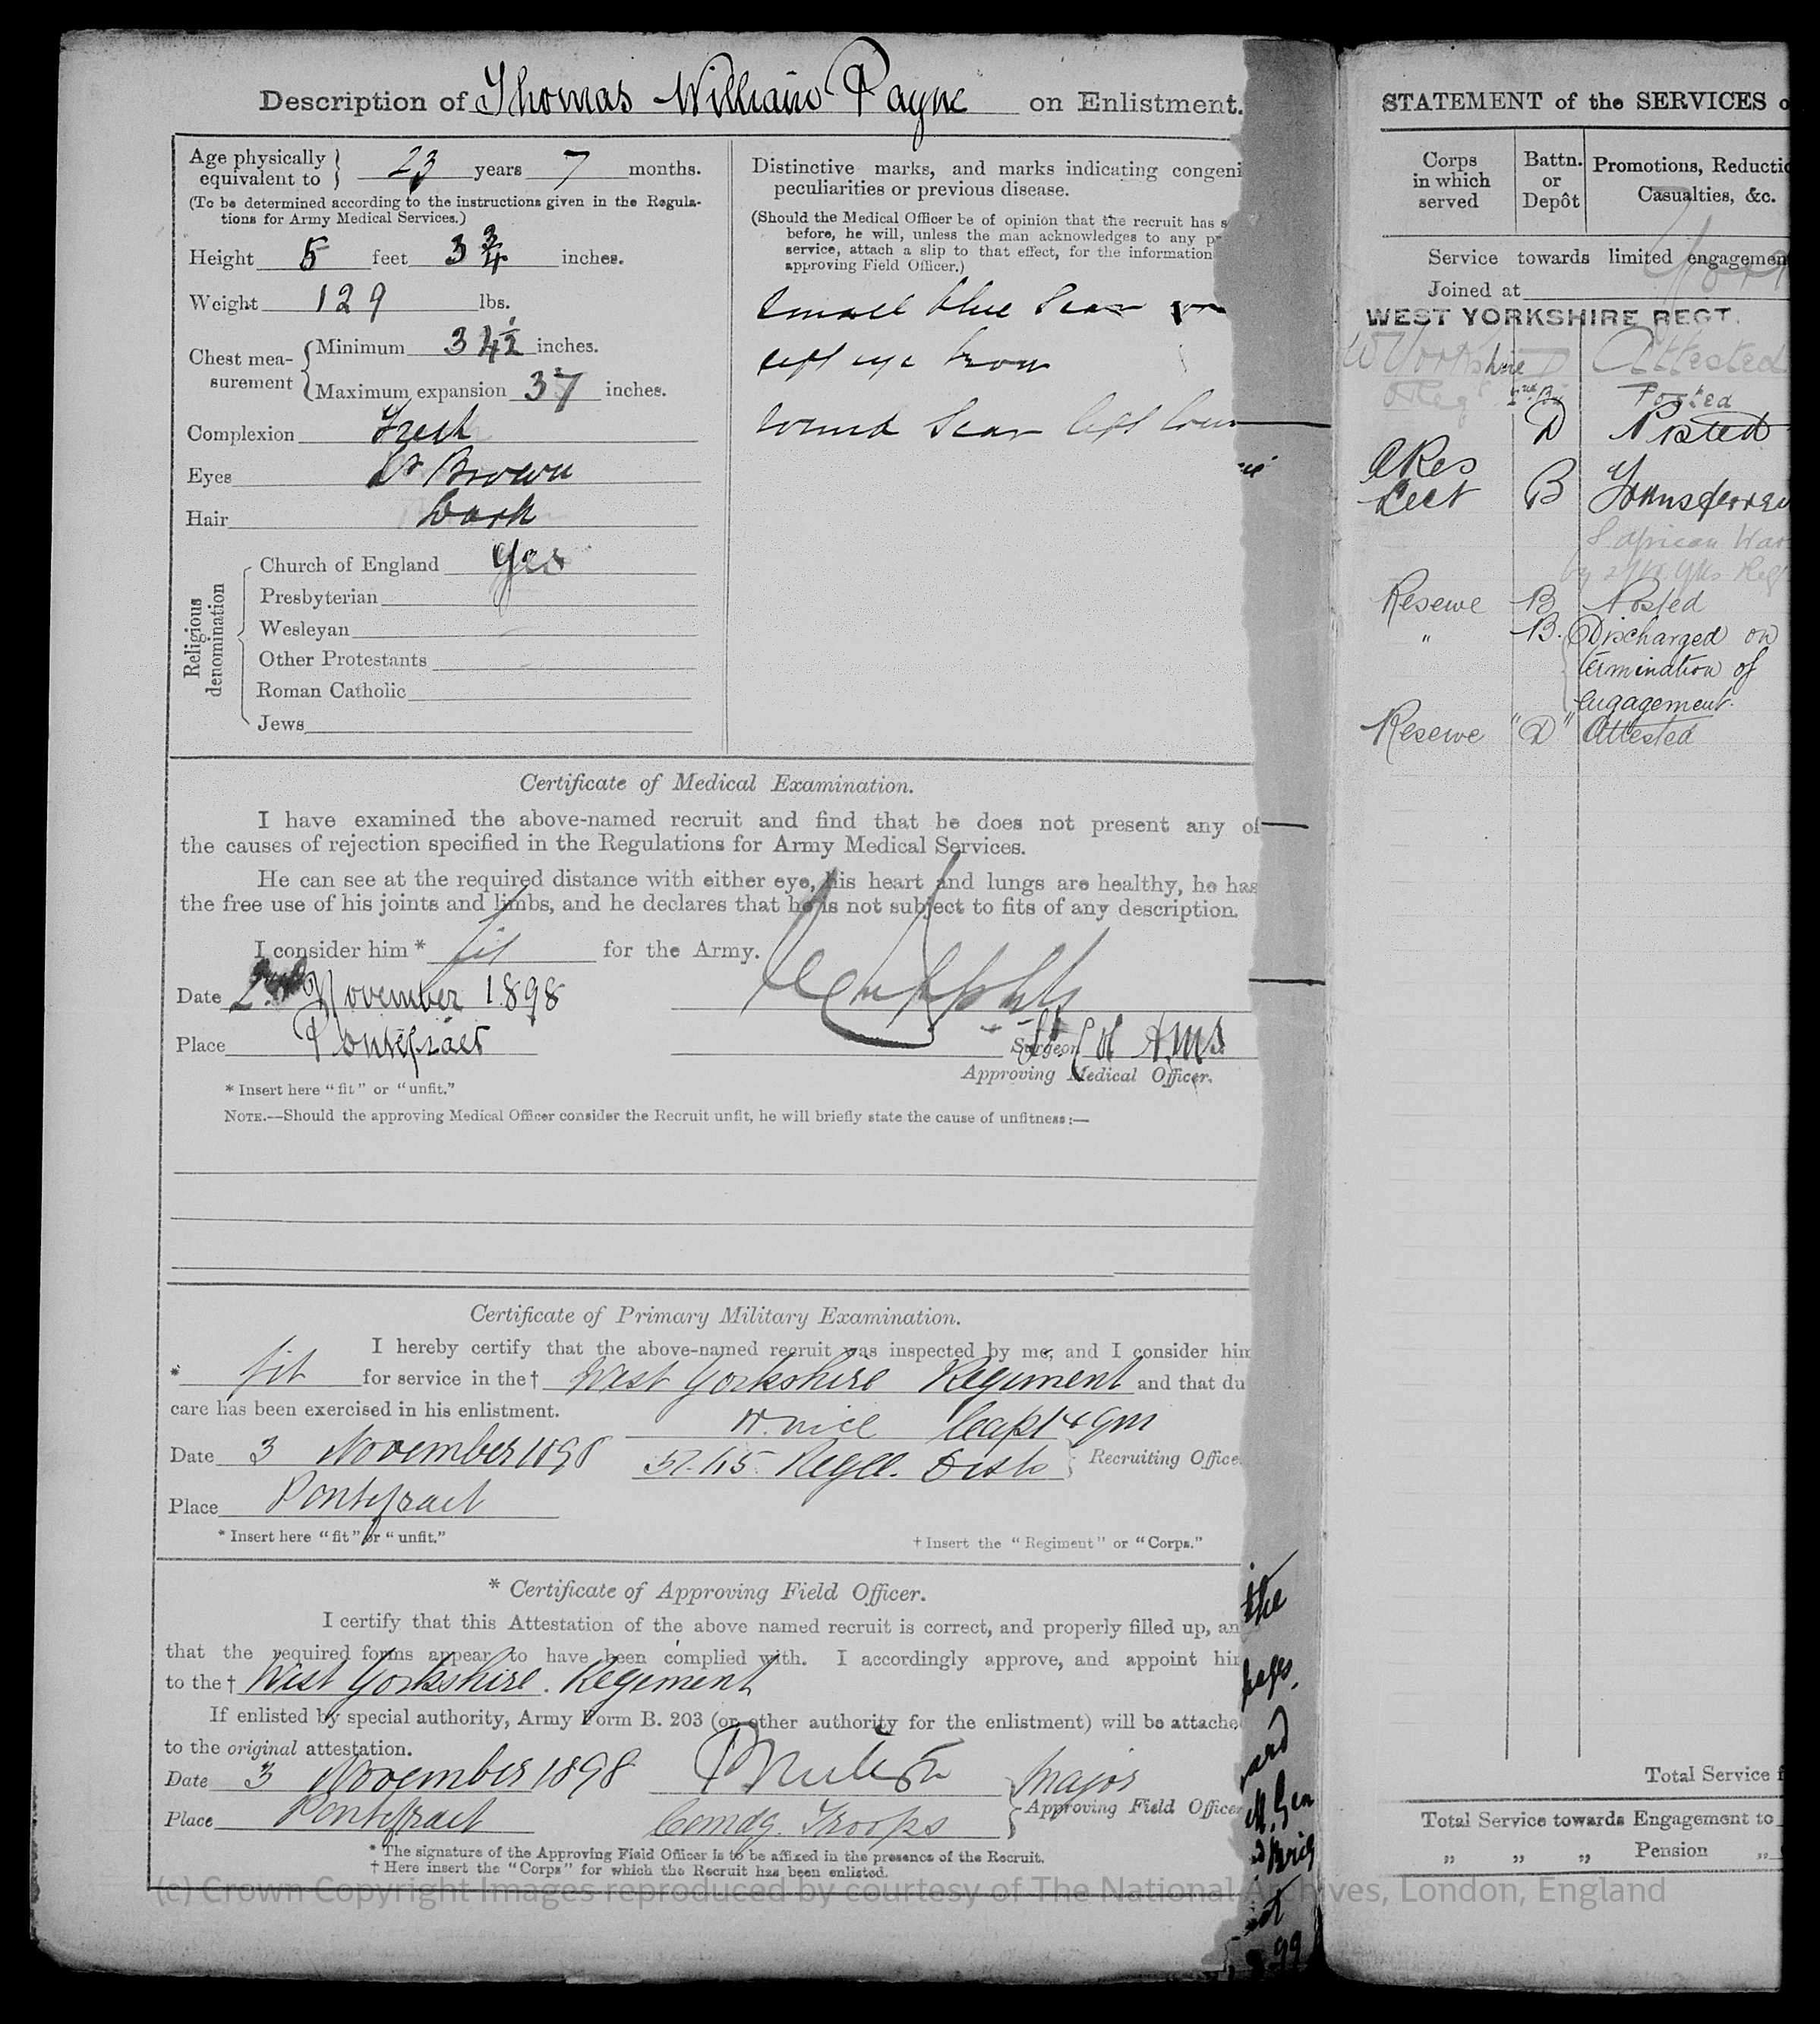 Description of Thomas William Payne on Enlistment.
Age physically equivalent to } 23 years 7 months.
(To be determined according to the instructions given in the Regula-
tions for Army Medical Services.)
Height 5 feet 3 3/4 inches.
Weight 129 lbs.
Chest mea-surement { Minimum 34 1/2 inches.
Maximum expansion 37 inches.
Complexion Fresh
Eyes Brown
Hair Dark
Religious denomination
Church of England Yes
Presbyterian
Wesleyan
Other Protestants
Roman Catholic
Jews
Distinctive marks, and marks indicating congeni
peculiarities or previous disease.
(Should the Medical Officer be of opinion that the recruit has s
before, he will, unless the man acknowledges to any p
service, attach a slip to that effect, for the information
approving Field Officer.)
Small blue Scar on
left eye brow
round Scar left
Certificate of Medical Examination.
I have examined the above-named recruit and find that he does not present any of
the causes of rejection specified in the Regulations for Army Medical Services.
He can see at the required distance with either eye, his heart and lungs are healthy, he has
the free use of his joints and limbs, and he declares that he is not subject to fits of any description.
I consider him * fit for the Army.
Date 2nd November 1898
Place Pontefract
Surgeon Lt Col AMS
Approving Medical Officer.
* Insert here "fit" or "unfit."
NOTE.—Should the approving Medical Officer consider the Recruit unfit, he will briefly state the cause of unfitness:—
Certificate of Primary Military Examination.
I hereby certify that the above-named recruit was inspected by me, and I consider him
* fit for service in the † West Yorkshire Regiment and that du
care has been exercised in his enlistment.
Capt & Qm
Date 3 November 1898 Regtl. Dist. } Recruiting Office
Place Pontefract
* Insert here "fit" or "unfit."
† Insert the "Regiment" or "Corps."
* Certificate of Approving Field Officer.
I certify that this Attestation of the above named recruit is correct, and properly filled up, an
that the required forms appear to have been complied with. I accordingly approve, and appoint him
to the † West Yorkshire. Regiment
If enlisted by special authority, Army Form B. 203 (or other authority for the enlistment) will be attache
to the original attestation.
Date 3 November 1898 Major
Place Pontefract Comdg. Troops } Approving Field Officer
* The signature of the Approving Field Officer is to be affixed in the presence of the Recruit.
† Here insert the "Corps" for which the Recruit has been enlisted.
the
and
99
STATEMENT of the SERVICES o
Corps in which served
Battn. or Depôt
Promotions, Reductio
Casualties, &c.
Service towards limited engagemen
Joined at
WEST YORKSHIRE REGT.
W Yorkshire D Attested
Regt Posted
D Posted
A Res
Sect B Transferred
S African War
Reserve B Posted
" B. Discharged on
termination of
engagement.
Reserve "D" Attested
Total Service f
Total Service towards Engagement to
" " " Pension "
(c) Crown Copyright Images reproduced by courtesy of The National Archives, London, England